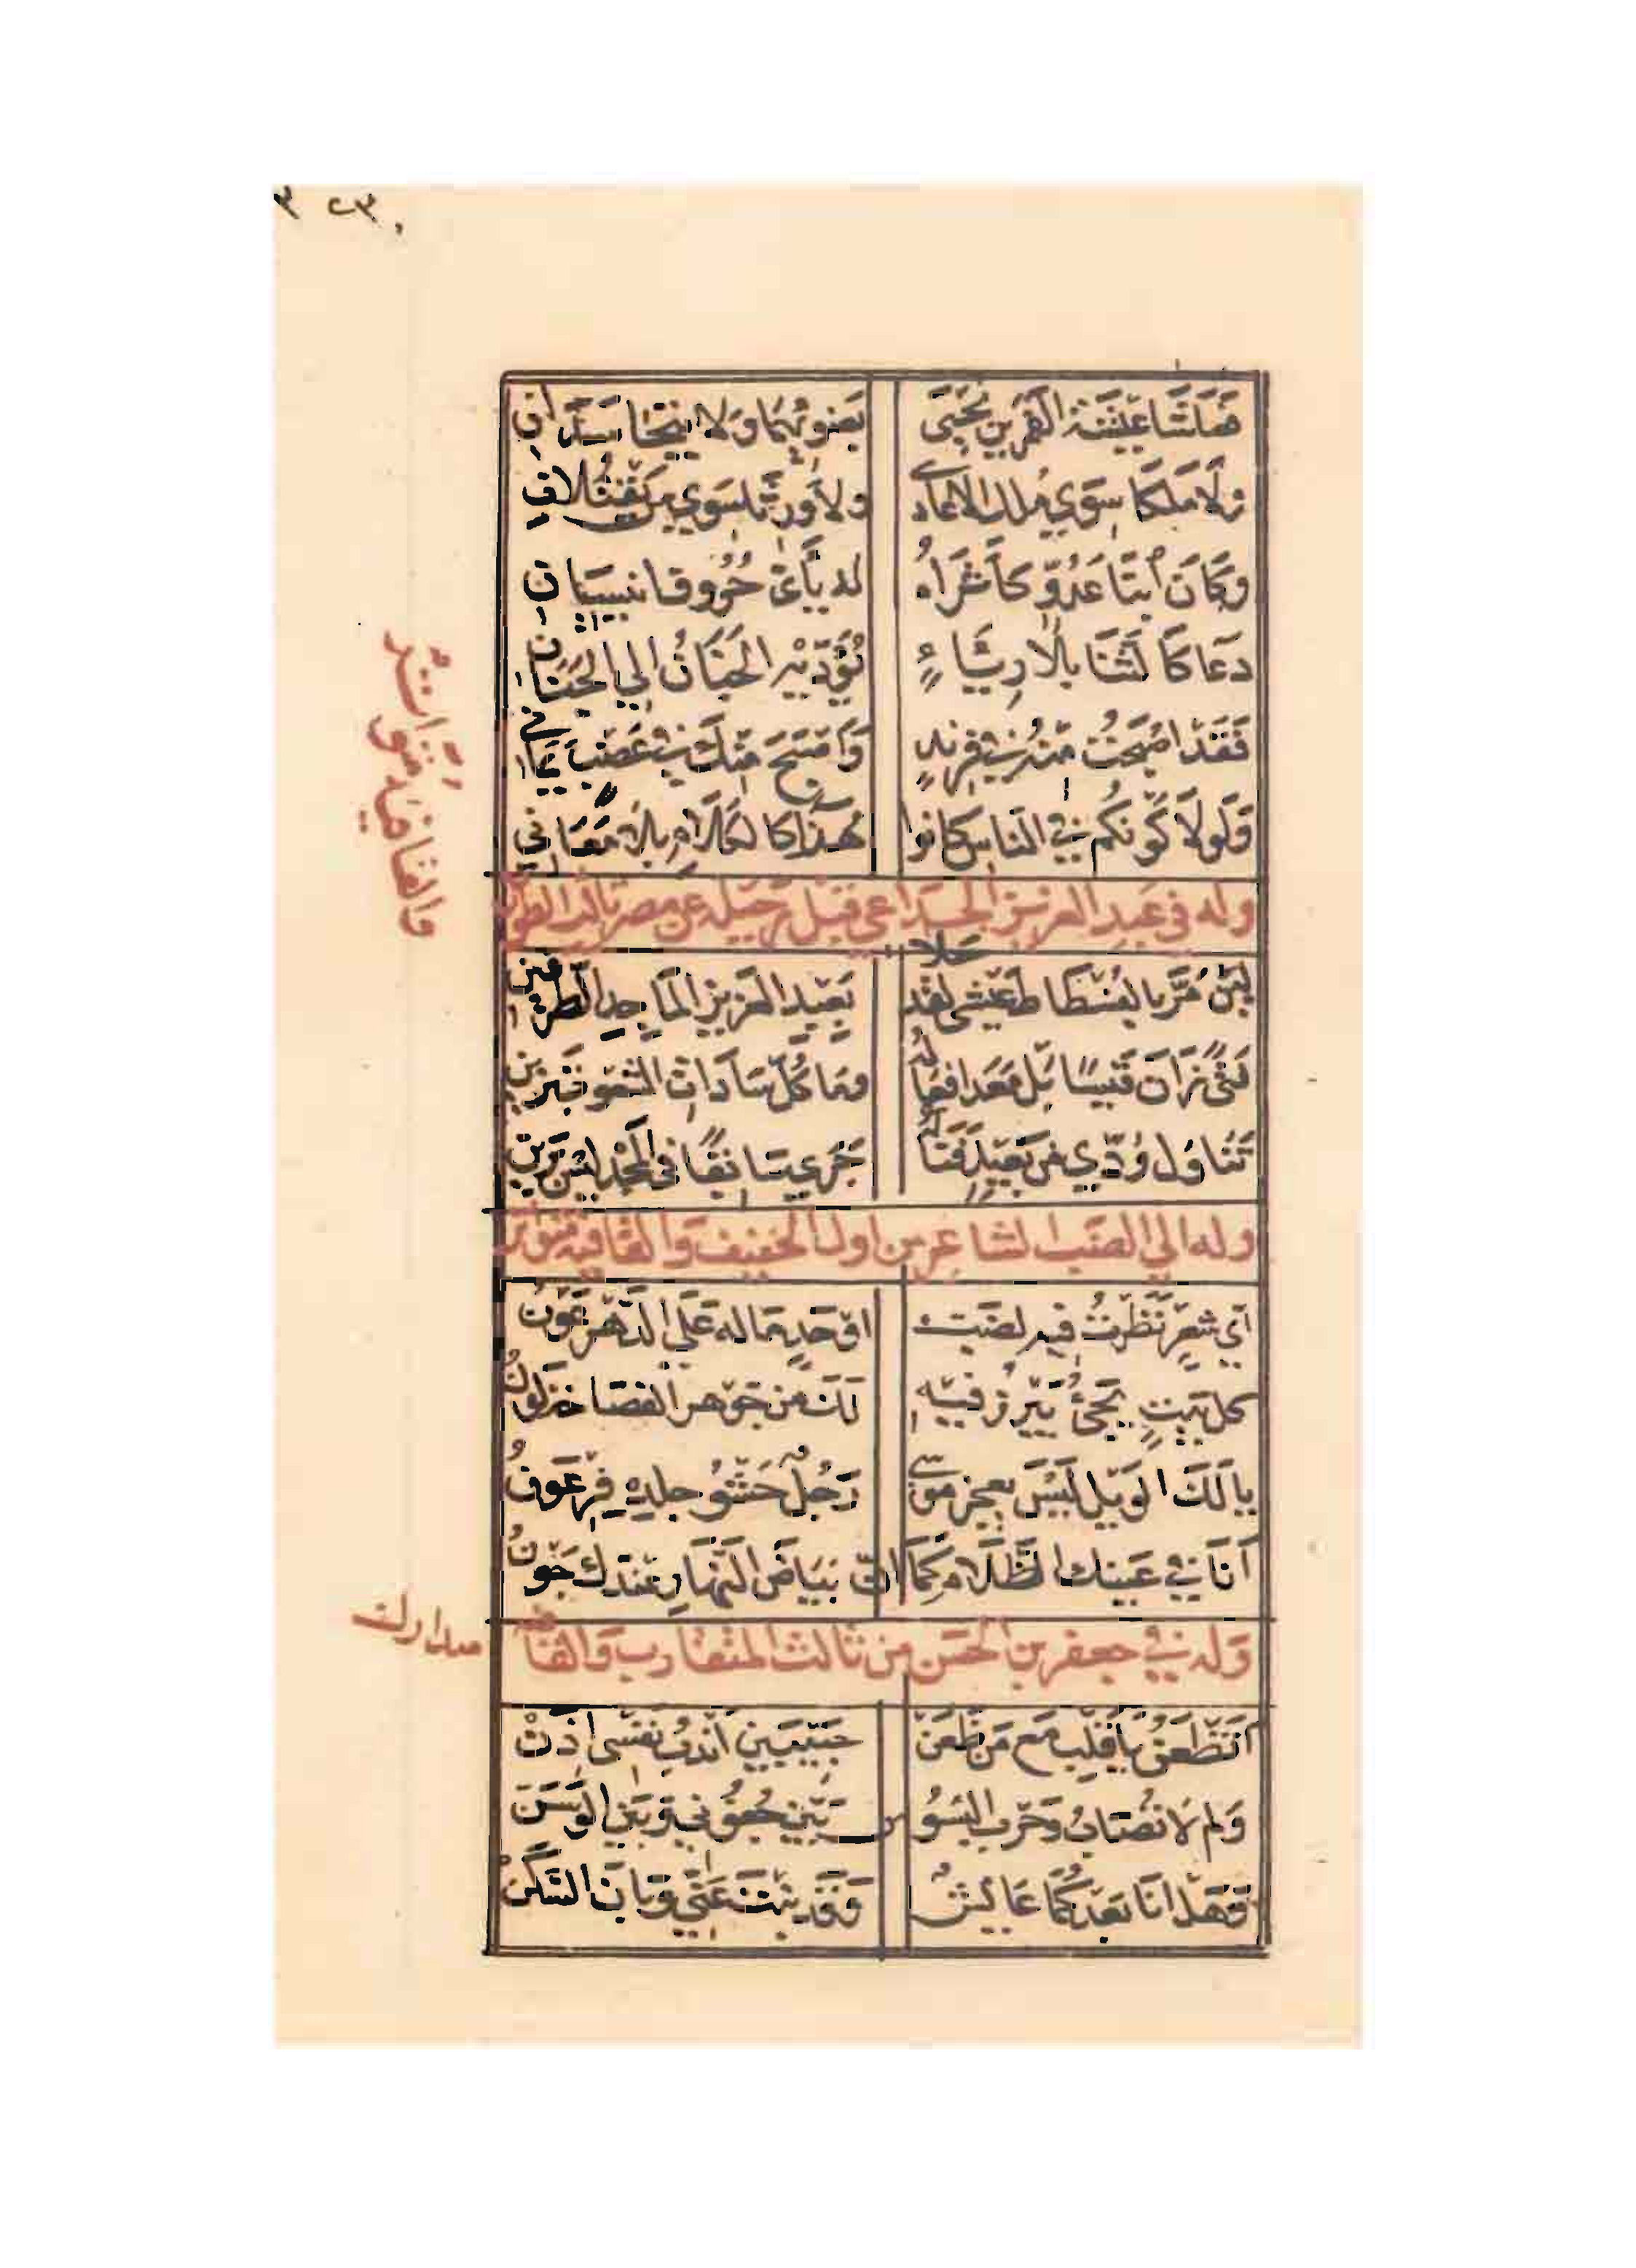 فَعَاشَا عِيْشَةَ القَمَرينِ يُحْيَى بِضَوئِهِمَا وَلا يَتَحَاسَدَانِ
وَلَا مَلَكَا سِوَي مُلك الاعَادي ولا وَرِثَا سَوِي مَن يَقْتُلانِ
وَكَانَ ابْنَا عَدُوٍّ كاثَرَاهُ له يَاءَيْ حُرُوف انيسيَانِ
دعَا كَا لثَنَا بِلا رِيَاءٍ يُؤَدّيْهِ الجَنَانُ الي الجَنَانِ
فَقَدْ اصْبَحْتَ مِنْهُ في فِرِنْدٍ وَاصْبَحَ مِنْكَ في عَضْبٍ يَمَاني
وَلَولَا كَوْنكُم في الناسِ كانوا هُذَاءً كا لكَلَامِ بِلا مَعَاني
وله في عَبدِ العزيز الخزاعي قبل رحيله عن مصر ثالث الطويل
والقافية متواتر
لَئِنْ مَرَّ بالفُسْطَاطِ عَيْشى لقد حَلا بَعَبدِ العَزيزِ المَاجِدِ الطرَفَينِ
فَتًى زَانَ قَيسًا بَل مَعَد افعَالُهُ ومَا كُلّ سَادَاتِ الشعُوبِ بزَينِ
تَنَاوَلَ وُدّي مِن بَعِيدٍ فنَالَهُ جَرَى سَابِقًا في المَجْدِ ليْسَ برَينِ
وله الي الضبِّ الشاعِر من اول الخفيف وَالقافية متواتر
اَيّ شعرٍ نَظَرْتُ فيهِ لضَبٍ اوْحَدٍ مَا له عَلَي الدَّهْرِ عَوْنُ
كل بَيْتٍ يَجئُ يَبْرُزُ فيهِ لَكَ من جَوهر الفصَاحَةِ لَوْنُ
يا لَكَ الوَيْل لَيْسَ يعجز مُوسَي رَجُلٌ حَشْوُ جلدِهِ فِرْعَونُ
اَنَا في عَينك الظَّلَامُ كَمَا انّ بَيَاضَ النَّهَارِ عندَك جَوْنُ
وَله في جعفر بن الحسَن من ثالث المتقارب وَالقافية
متدارك
اَتَظْعَنُ يَا قَلْب مَع مَن ظَعَنْ حَبِيْبَيْنِ اَنْدُبُ نفسى اذَنْ
وَلم لَا تُصَابُ وَحَرب البسُو سِ بَيْن جُفُوني وَبَين الوَسَنْ
وَهَل انَا بَعْدَكُمَا عَايشٌ وَقَد بِنْتَ عَنّي وَبَانَ السَّكَنْ